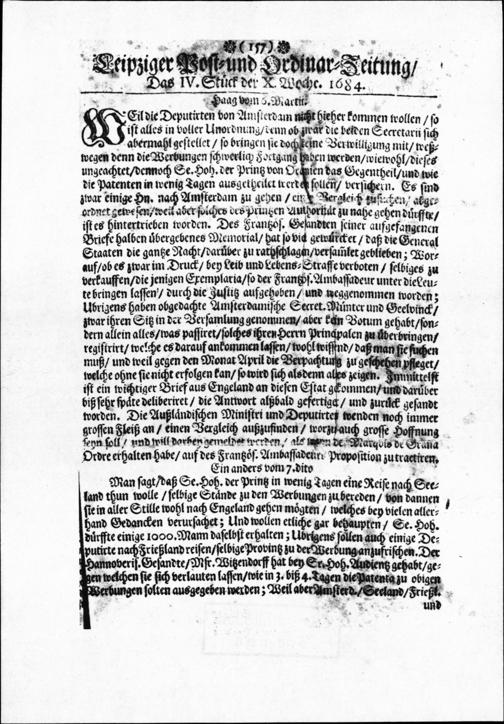 (157)
Leipziger Post-und Ordinar-Zeitung/
Das IV. Stück der X. Woche. 1684.
Haag vom 6. Martii.
WEil die Deputirten von Amsterdam nicht hieher kommen wollen / so
ist alles in voller Unordnung/denn ob zwar die beiden Secretarii sich
abermahl gestellet / so bringen sie doch keine Verwilligung mit/ weß-
wegen denn die Werbungen schwerlich Fortgang haben werden/wiewohl/dieses
ungeachtet/dennoch Se. Hoh. der Printz von Oranien das Gegentheil/und wie
die Patenten in wenig Tagen ausgetheilet werden sollen/ versichern. Es sind
zwar einige Hn. nach Amsterdam zu gehen / einen Vergleich zusuchen/ abge-
ordnet gewesen/weil aber solches des Printzen Authorität zu nahe gehen dürffte/
ist es hintertrieben worden. Des Frantzös. Gesandten seiner aufgefangenen
Briefe halben übergebenes Memorial/hat so viel gewürcket / daß die General
Staaten die gantze Nacht/darüber zu rathschlagen/versamlet geblieben; Wor-
auf/ob es zwar im Druck/ bey Leib und Lebens-Straffe verboten / selbiges zu
verkauffen/die jenigen Exemplaria/so der Frantzös. Ambassadeur unter die Leu-
te bringen lassen/ durch die Justitz aufgehoben / und weggenommen worden;
Ubrigens haben obgedachte Amsterdamische Secret. Münter und Geelvinck/
zwar ihren Sitz in der Versamlung genommen/aber kein Votum gehabt/son-
dern allein alles/was passiret/solches ihren Herrn Principalen zu überbringen/
registrirt/ welche es darauf ankommen lassen/ wohl wissend/ daß man sie suchen
muß/ und weil gegen den Monat April die Verpachtung zu geschehen pfleget/
welche ohne sie nicht erfolgen kan/ so wird sich alsdenn alles zeigen. Immittelst
ist ein wichtiger Brief aus Engeland an diesen Estat gekommen/und darüber
biß sehr späte deliberiret/ die Antwort alsbald gefertiget / und zurück gesandt
worden. Die Außländischen Ministri und Deputirten wenden noch immer
grossen Fleiß an/ einen Vergleich außzufinden / worzu auch grosse Hoffnung
seyn soll / und will darbey gemeldet werden/ als wenn de Marquis de Grana
Ordre erhalten habe/ auf des Frantzös. Ambassadeurs Proposition zu tractiren.
Ein anders vom 7. dito
Man sagt/daß Se. Hoh. der Printz in wenig Tagen eine Reise nach See-
land thun wolle / selbige Stände zu den Werbungen zu bereden / von dannen
sie in aller Stille wohl nach Engeland gehen mögten / welches bey vielen aller-
hand Gedancken verursachet ; Und wollen etliche gar behaupten / Se. Hoh.
dürffte einige 1000. Mann daselbst erhalten ; Ubrigens sollen auch einige De-
putirte nach Frießland reisen/selbige Provintz zu der Werbung anzufrischen. Der
Hannoveris. Gesandte/Msr. Witzendorff hat bey Sr. Hoh. Audientz gehabt/ge-
gen welchen sie sich verlauten lassen/wie in 3. biß 4. Tagen die Patenta zu obigen
Werbungen solten ausgegeben werden ; Weil aber Amsterd./ Seeland/Frießl.
und